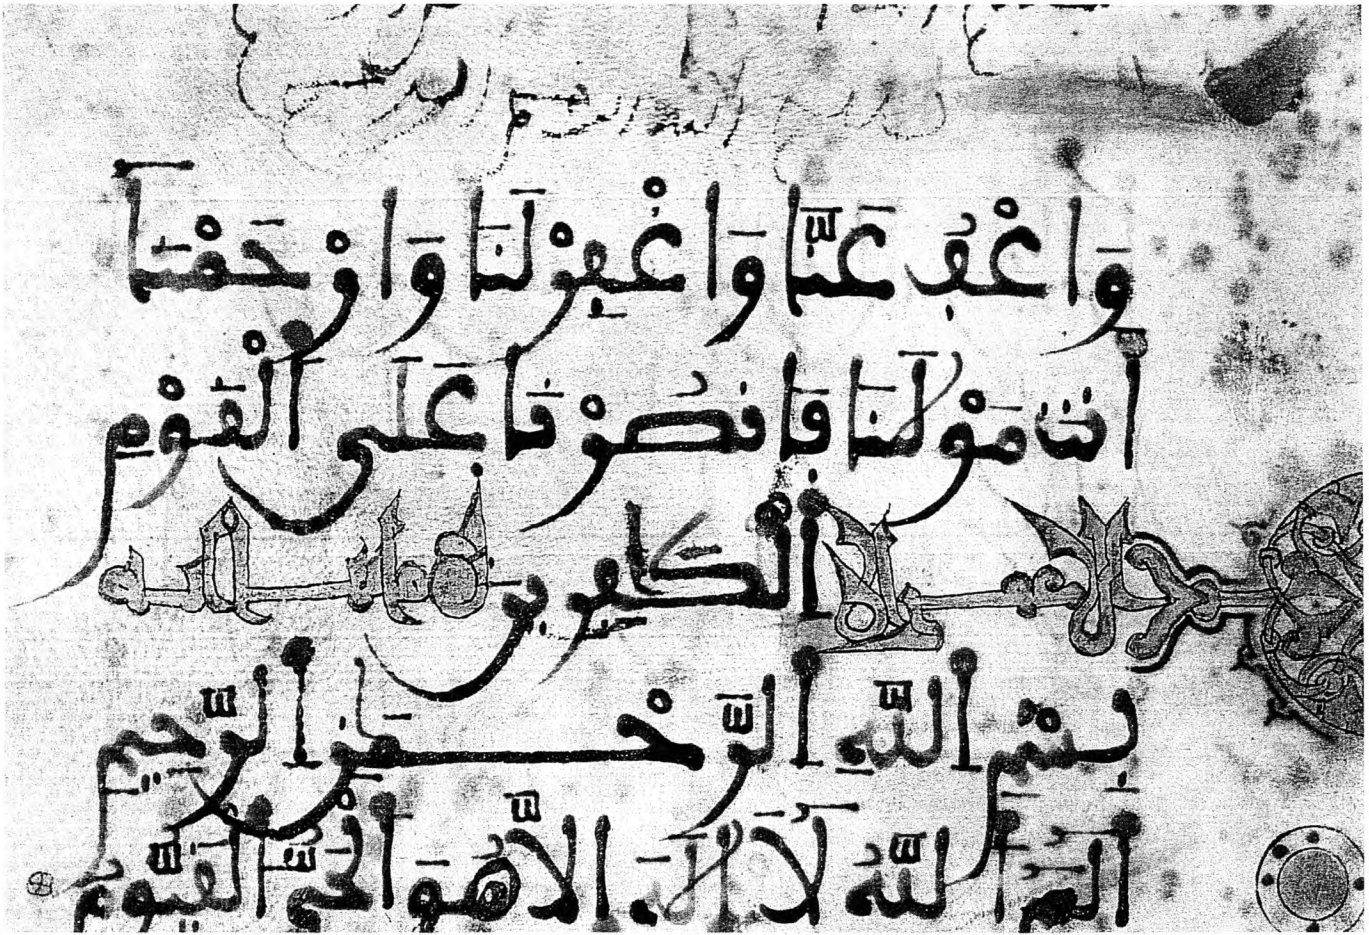 وَاعْفُ عَنَّا وَاغْفِرْ لَنَا وَارْحَمْنَا
اَنتَ مَوْلَٰنَا فَانصُرْنَا عَلَى الْقَوْمِ
الْكَٰفِرِينَ
بِسْمِ اللَّهِ الرَّحْمَٰنِ الرَّحِيمِ
الٓمٓ اللَّهُ لَآ اِلَٰهَ اِلَّا هُوَ الْحَيُّ الْقَيُّومُ